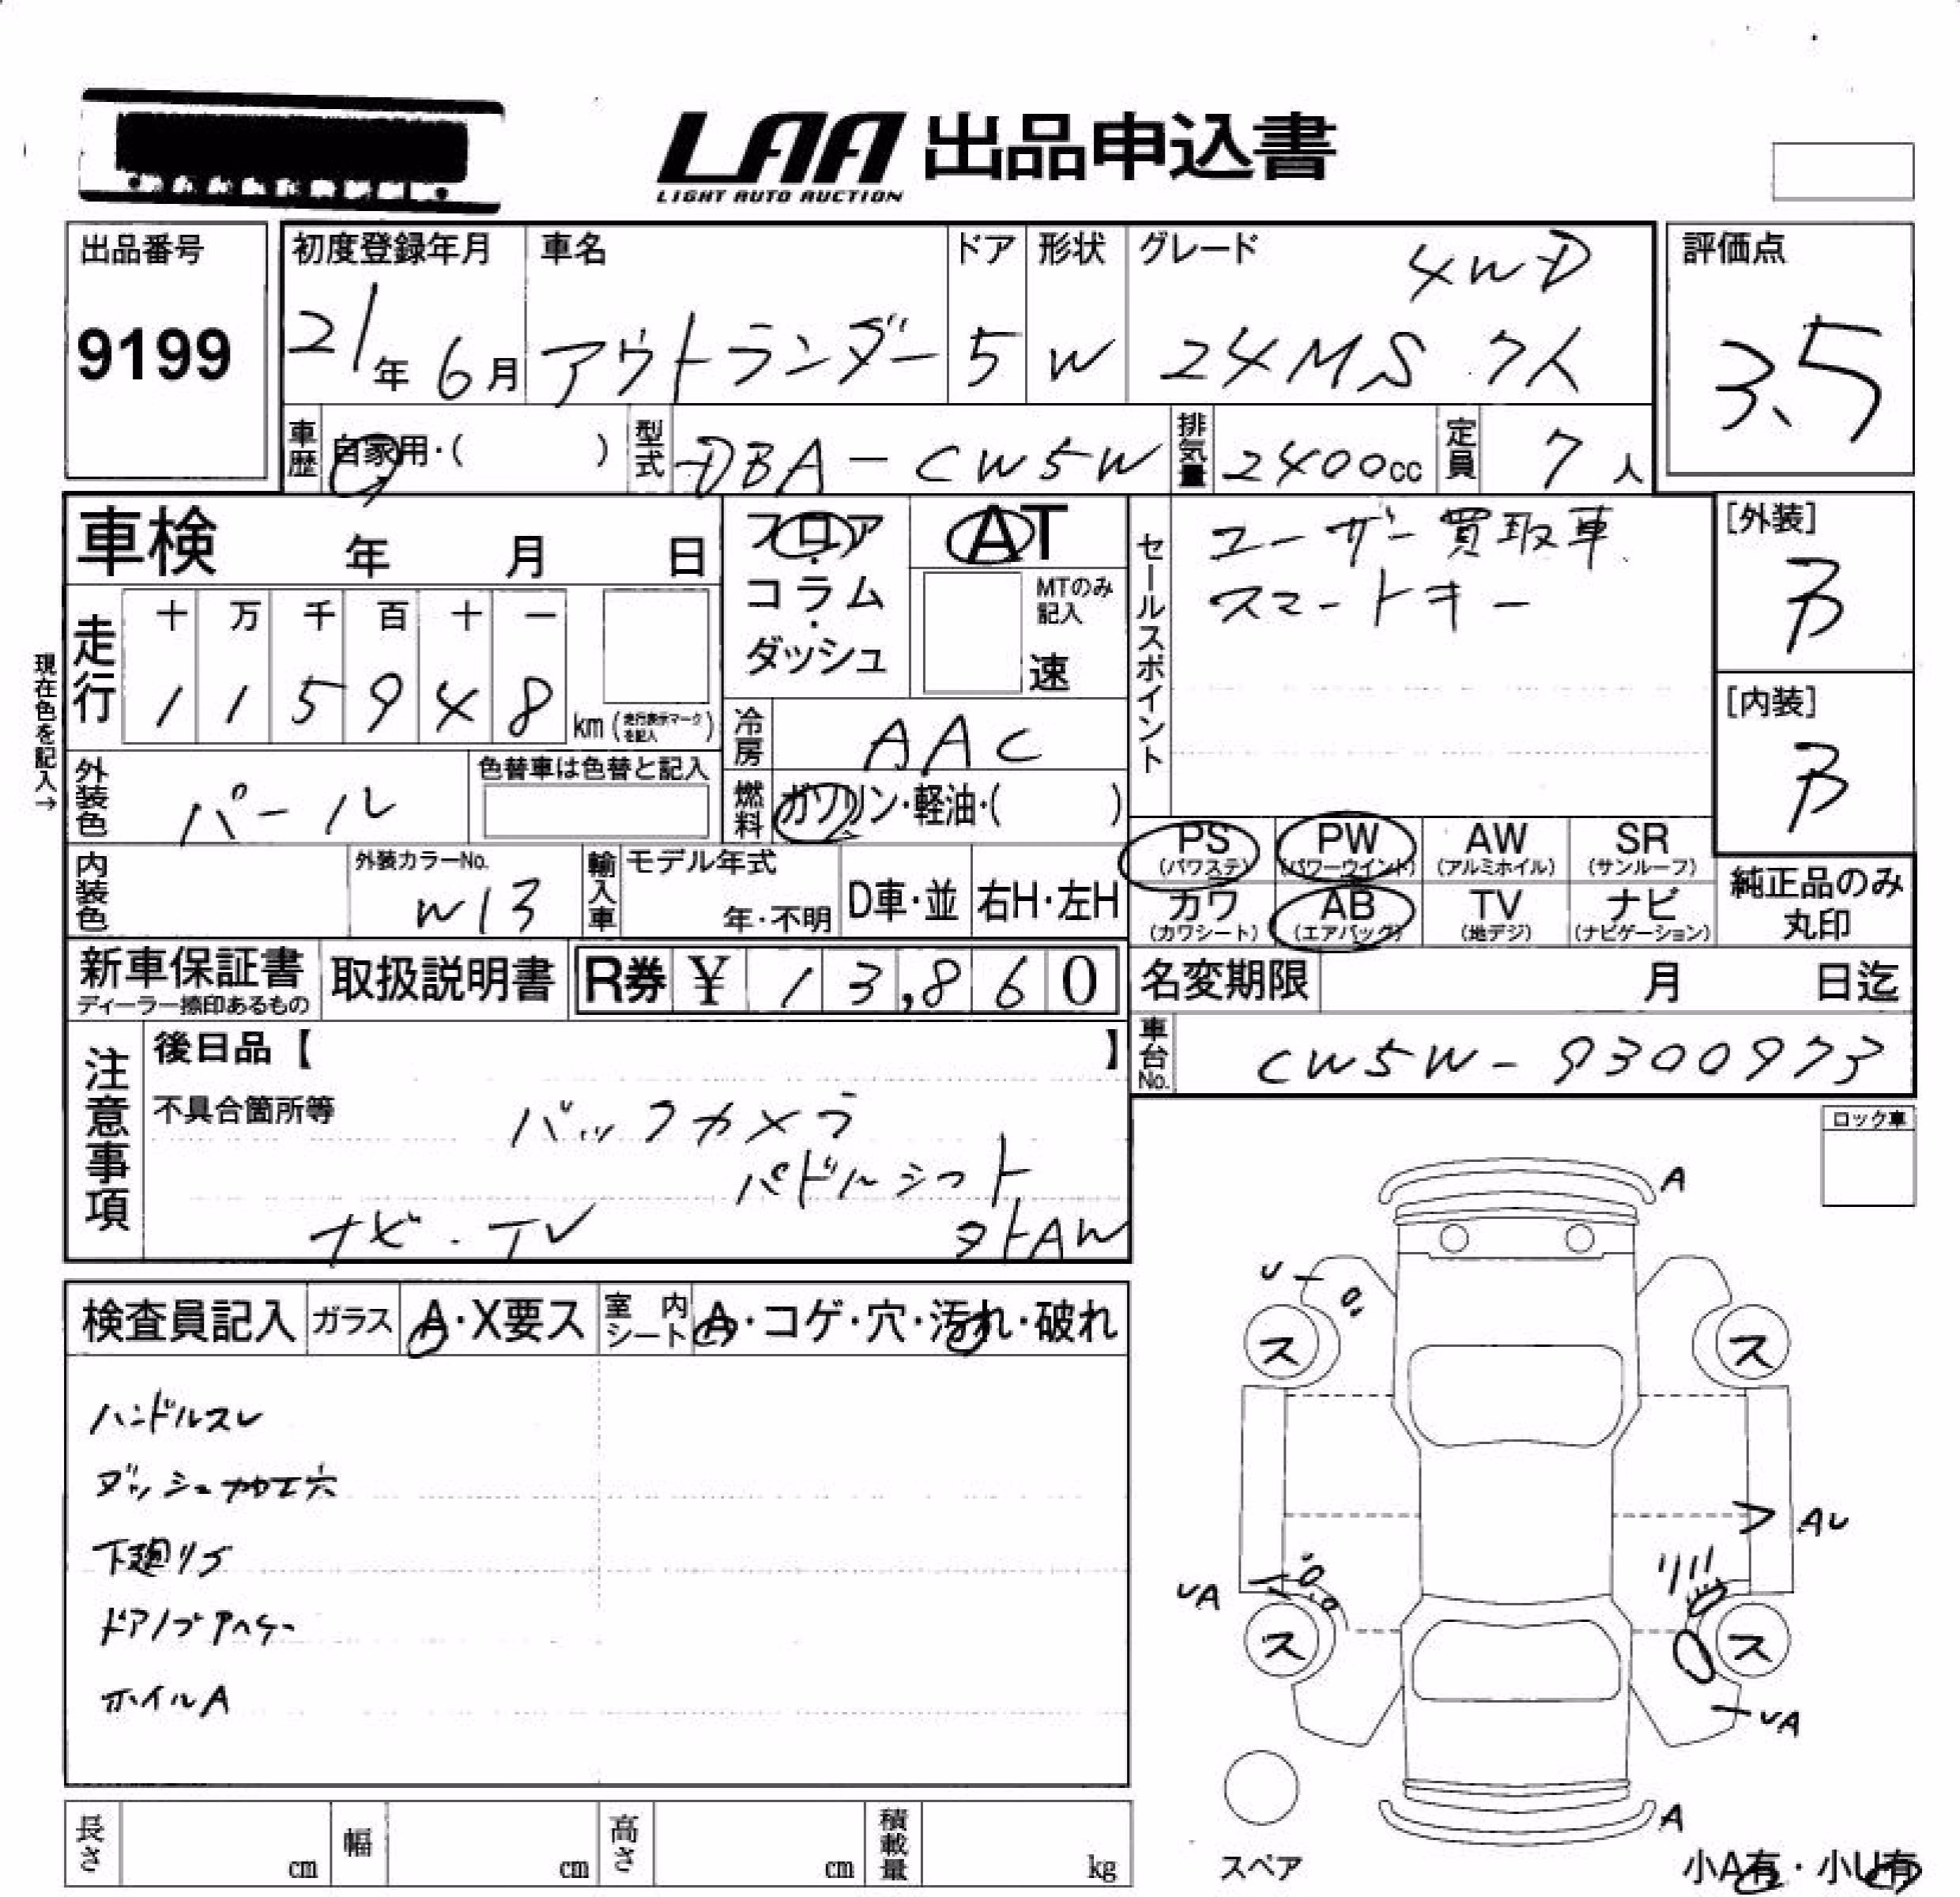 LAA 出品申込書
LIGHT AUTO AUCTION
出品番号
9199
初度登録年月
21年 6月
車名
アウトランダー
ドア
5
形状
W
グレード
4WD
24MS 7人
評価点
3.5
車歴
自家用・( )
型式
DBA-CW5W
排気量
2400cc
定員
7人
車検 年 月 日
フロア・コラム・ダッシュ
AT
MTのみ記入
速
セールスポイント
ユーザー買取車
スマートキー
[外装]
B
[内装]
B
現在色を記入→
走行
十 万 千 百 十 一
1 1 5 9 4 8 km (走行表示マークを記入)
冷房
AAC
外装色
パール
色替車は色替と記入
燃料
ガソリン・軽油・( )
PS (パワステ)
PW (パワーウインド)
AW (アルミホイル)
SR (サンルーフ)
カワ (カワシート)
AB (エアバッグ)
TV (地デジ)
ナビ (ナビゲーション)
純正品のみ丸印
内装色
外装カラーNo.
W13
輸入車
モデル年式
年・不明
D車・並
右H・左H
新車保証書
ディーラー捺印あるもの
取扱説明書
R券 ¥ 13,860
名変期限 月 日迄
車台No.
CW5W-9300973
注意事項
後日品【 】
不具合箇所等
バックカメラ
パドルシフト
ナビ・TV
外AW
ロック車
検査員記入
ガラス
A・X要ス
室内シート
A・コゲ・穴・汚れ・破れ
ハンドルスレ
ダッシュ加工穴
下廻リサ
ドアノブアヘコ
ホイルA
A
U
ス
ス
AU
UA
ス
ス
UA
A
スペア
小A有・小U有
長さ cm
幅 cm
高さ cm
積載量 kg